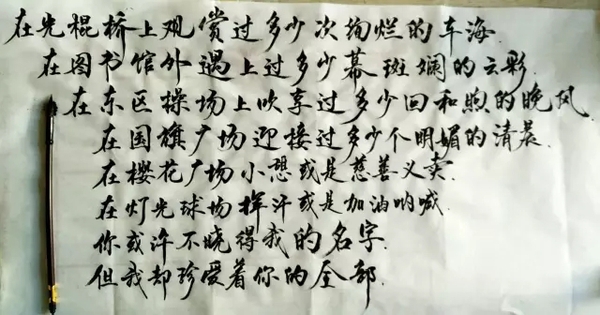 在光棍桥上观赏过多少次绚烂的车海
在图书馆外遇上过多少幕斑斓的云彩
在东区操场上吹享过多少回和煦的晚风
在国旗广场迎接过多少个明媚的清晨
在樱花广场小憩或是慈善义卖
在灯光球场挥汗或是加油呐喊
你或许不晓得我的名字
但我却珍爱着你的全部